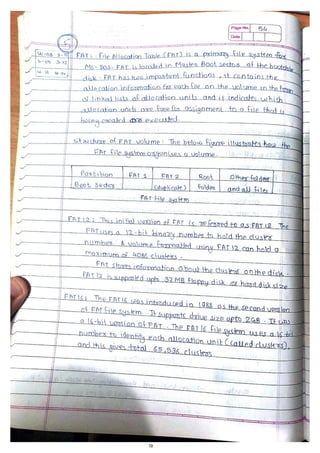 Page No. 56
Date
5
FAT: File Allocation Table (FAT) is a primary file system for
MS-DOS. FAT is located in Master Boot sector of the bootable
disk. FAT has two important functions, it contains the
allocation information for each file on the volume in the form
of linked lists of allocation units and it indicates which
allocation units are free for assignment to a file that is
being created or executed.
Structure of FAT volume: The below figure illustrates how the
FAT file system organises a volume.
Partition FAT 1 FAT 2 Root Other folder
Boot Sector (duplicate) folder and all files
FAT file system
FAT12: This initial version of FAT is referred to as FAT12. The
FAT uses a 12-bit binary number to hold the cluster
number. A volume formatted using FAT 12 can hold a
maximum of clusters.
FAT stores information about the clusters on the disk.
FAT 12 is supported upto 32 MB floppy disk or hard disk size
FAT16: The FAT16 was introduced in 1983 as the second version
of FAT file system. It supports drive size upto 2GB. It was
a 16-bit version of FAT. The FAT16 file system uses a 16-bit
number to identify each allocation unit (called clusters),
and this gives total 65,536 clusters.